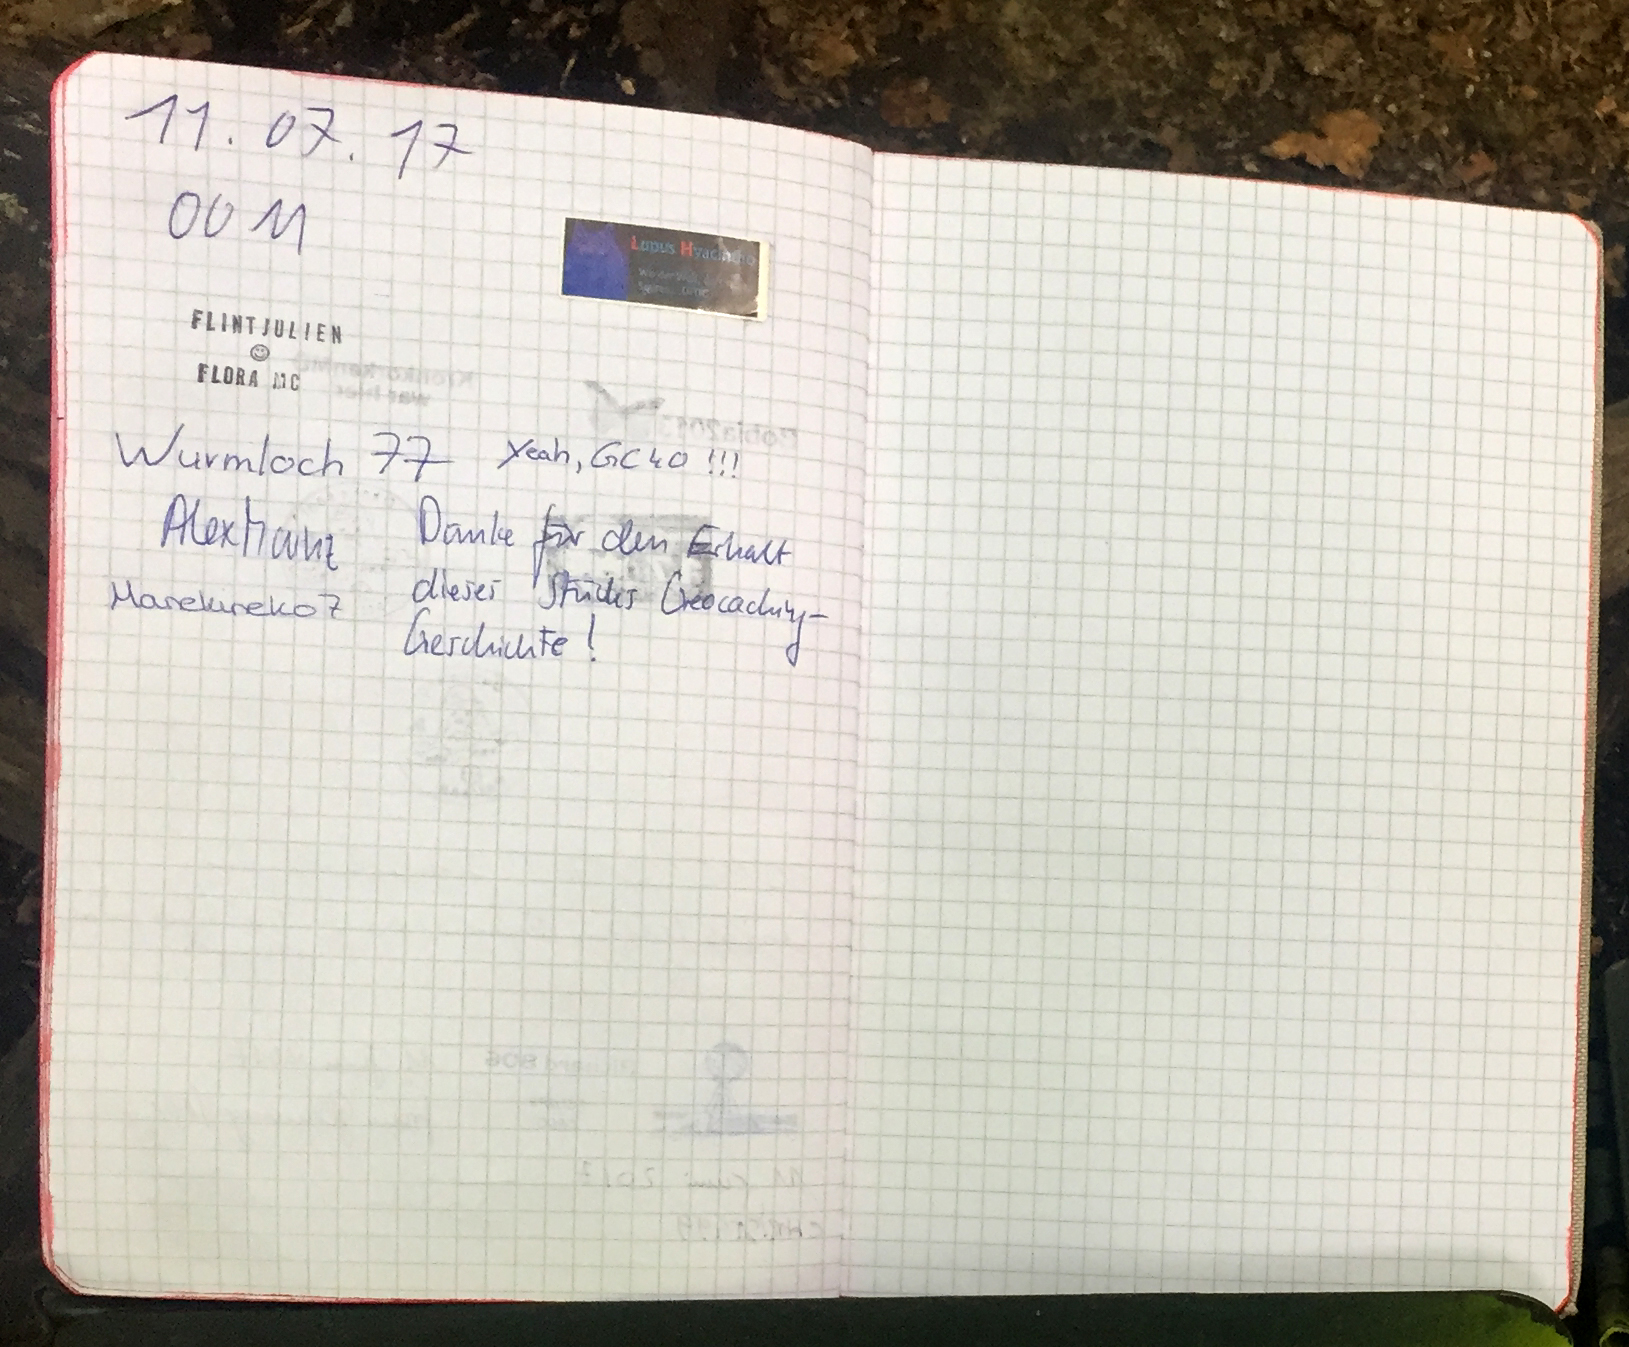 11.07.17
00 M
Lupus Hyacintho
FLINTJULIEN
FLORA MC
Wurmloch 77 Yeah, GC40 !!!
AlexMainz Danke für den Erhalt
dieses Stücks Geocaching-
Geschichte!